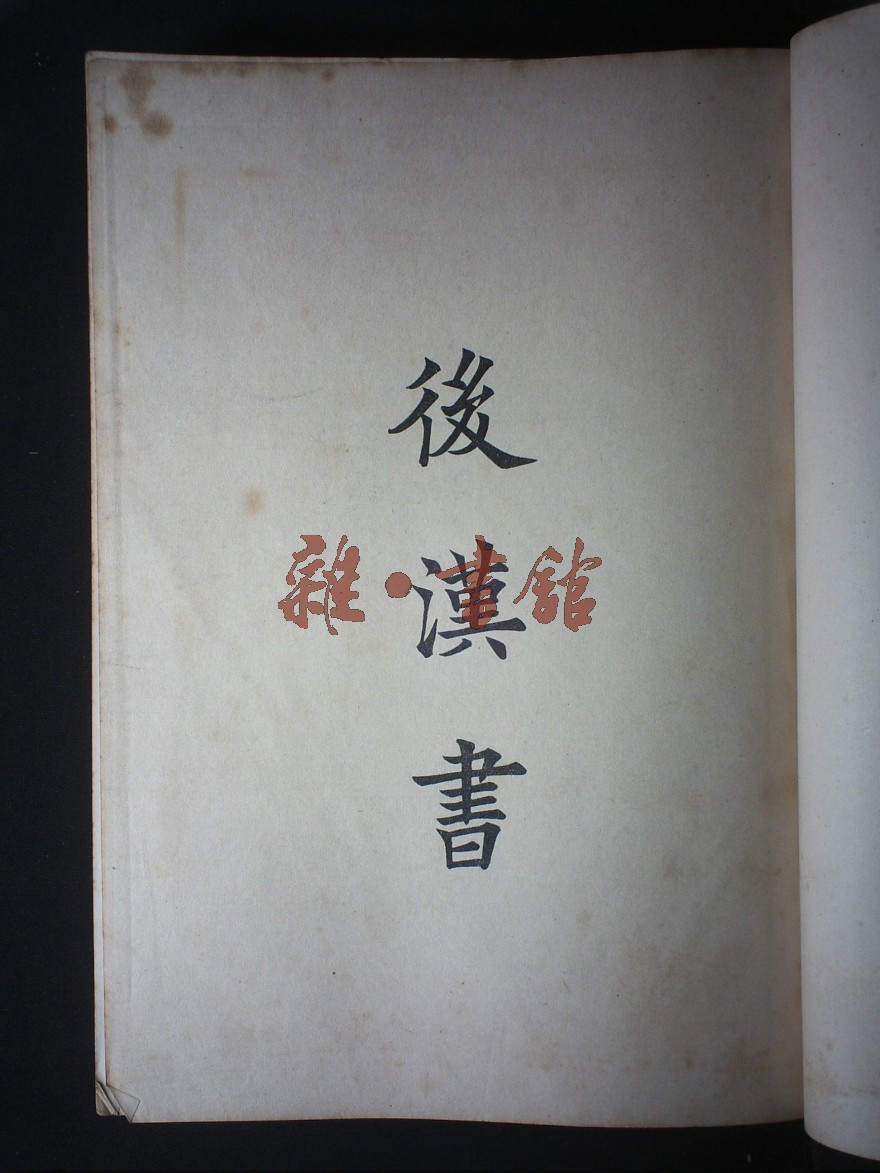 後漢書
雜·書館